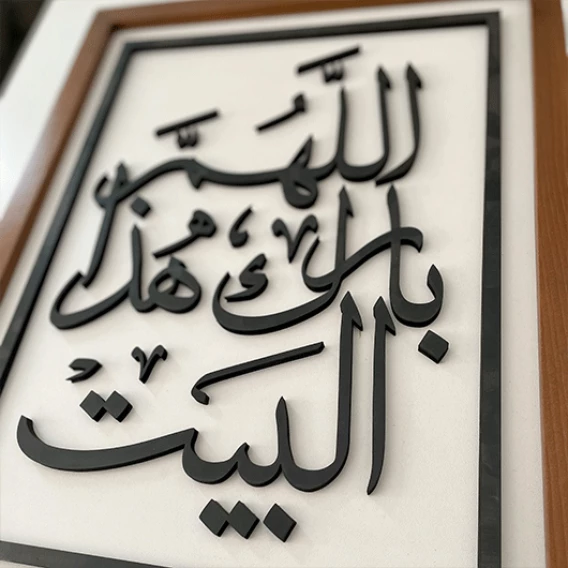 اللَّهُمَّ
بارك هٰذا
البَيتْ